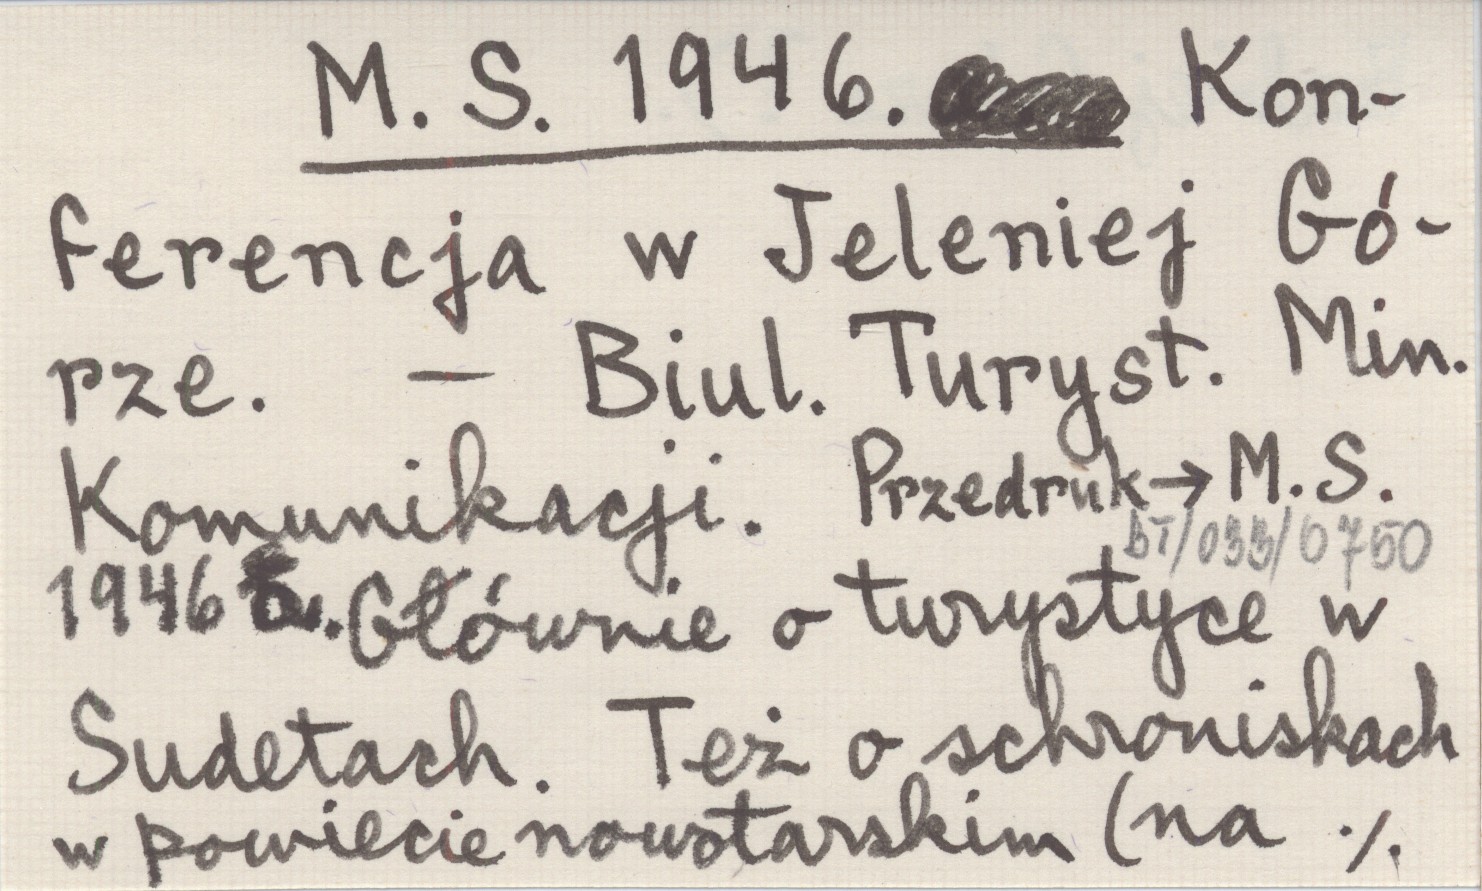 M. S. 1946. Kon-
ferencja w Jeleniej Gó-
rze. — Biul. Turyst. Min.
Komunikacji. Przedruk → M. S.
BT/033/0750
1946 . Głównie o turystyce w
Sudetach. Też o schroniskach
w powiecie nowotarskim (na ./.